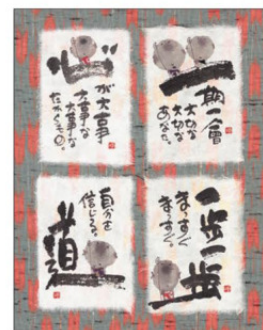 心
が大事
大事な
大事な
たからもの。
一
期一會
大切な
大切な
あなた。
自分を
信じる。
道
一歩一歩
まっすぐ
まっすぐ。